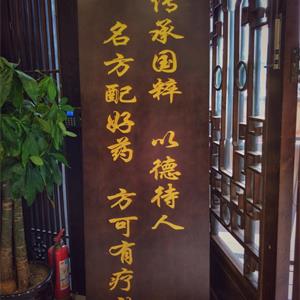 传承国粹 以德待人
名方配好药 方可有疗